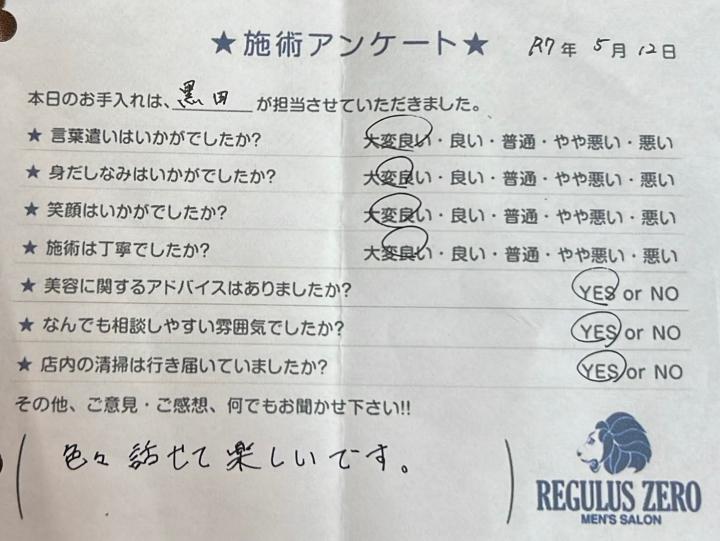 ★施術アンケート★ R7年 5月 12日
本日のお手入れは、黒田が担当させていただきました。
★ 言葉遣いはいかがでしたか? 大変良い・良い・普通・やや悪い・悪い
★ 身だしなみはいかがでしたか? 大変良い・良い・普通・やや悪い・悪い
★ 笑顔はいかがでしたか? 大変良い・良い・普通・やや悪い・悪い
★ 施術は丁寧でしたか? 大変良い・良い・普通・やや悪い・悪い
★ 美容に関するアドバイスはありましたか? YES or NO
★ なんでも相談しやすい雰囲気でしたか? YES or NO
★ 店内の清掃は行き届いていましたか? YES or NO
その他、ご意見・ご感想、何でもお聞かせ下さい!!
色々 話せて 楽しいです。
REGULUS ZERO
MEN'S SALON